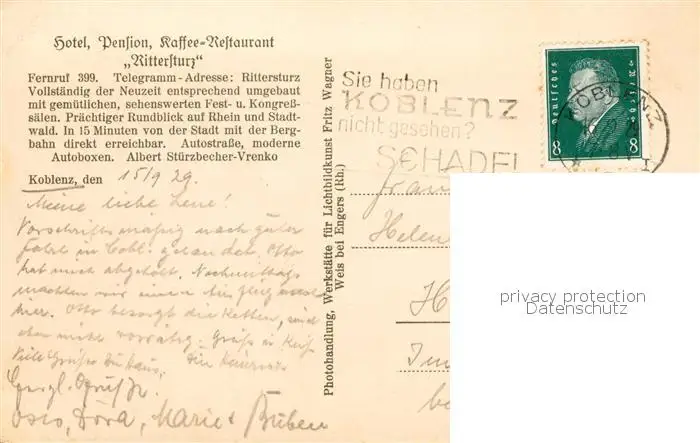 Hotel, Pension, Kaffee-Restaurant
„Rittersturz"
Fernruf 399. Telegramm-Adresse: Rittersturz
Vollständig der Neuzeit entsprechend umgebaut
mit gemütlichen, sehenswerten Fest- u. Kongreß-
sälen. Prächtiger Rundblick auf Rhein und Stadt-
wald. In 15 Minuten von der Stadt mit der Berg-
bahn direkt erreichbar. Autostraße, moderne
Autoboxen. Albert Stürzbecher-Vrenko
Koblenz, den 15/9 29.
Meine liebe Lene!
Vorschriftsmäßig nach guter
Fahrt in Cobl. gelandet. Otto
hat mich abgeholt. Nachmittags
machten wir einen Ausflug
hier. Otto besorgt die Ketten, sind
eben nicht vorrätig. Gruß u. Kuß
Viele Grüße zu Haus. Dein
Herzl. Gruß
Otto, Dora, Marie + Buben
Photohandlung, Werkstätte für Lichtbildkunst Fritz Wagner
Weis bei Engers (Rh.)
Sie haben
KOBLENZ
nicht gesehen?
SCHADE!
Deutsches Reich
8 8
KOBLENZ
Frau
Helen
H
privacy protection
Datenschutz